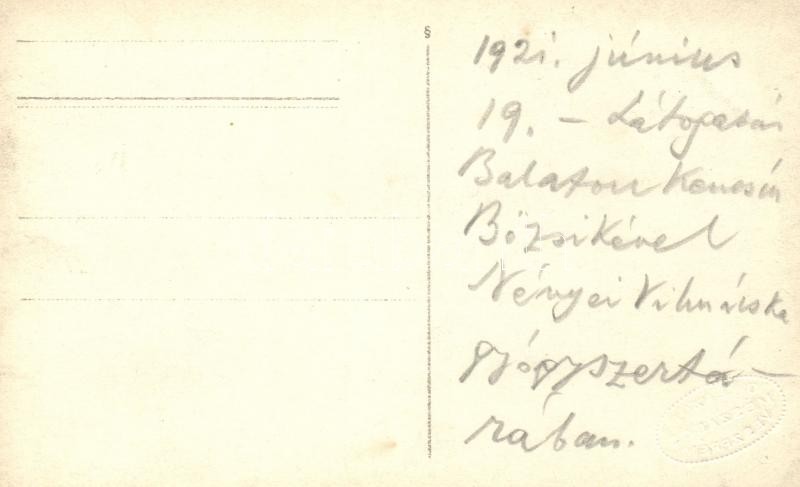 1921. június
19. – Látogatás
Balaton Kenesén
Bözsikével
Nényei Vilmácska
gyógyszertá-
rában.